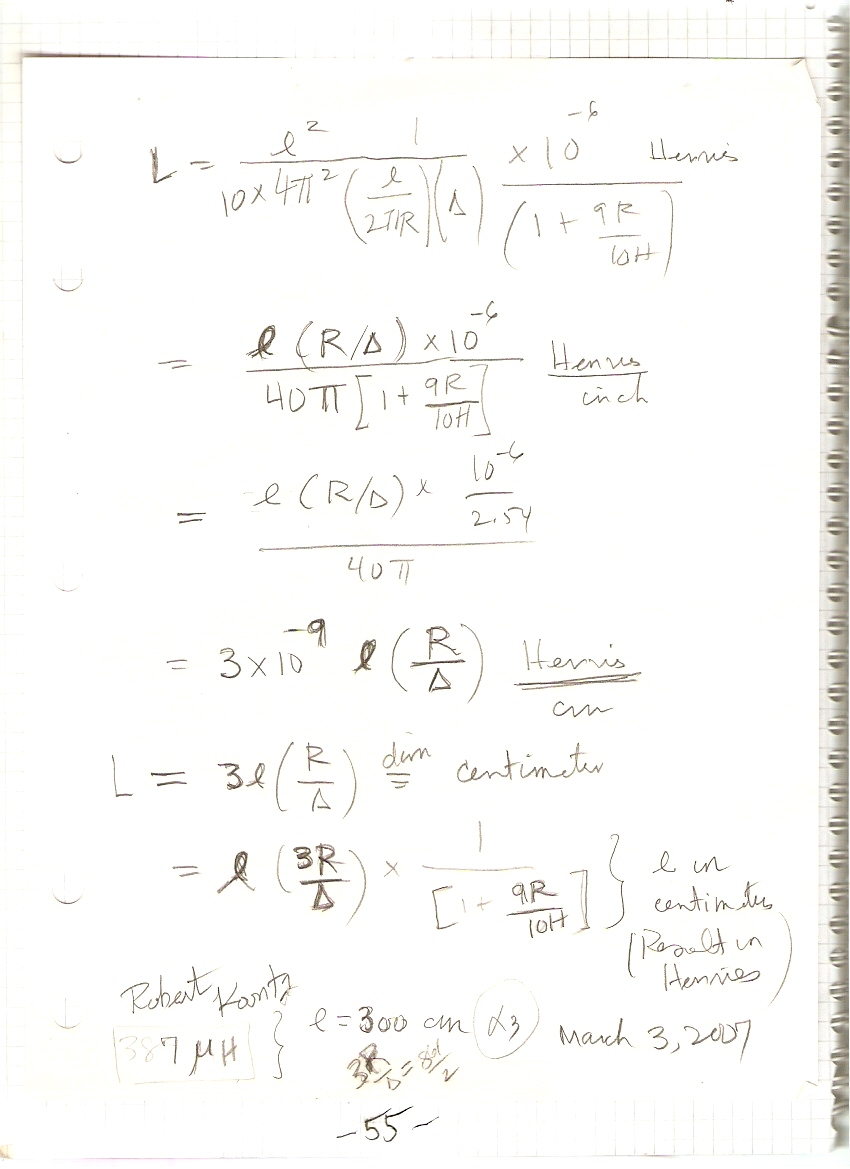 L = ℓ² 1 / 10×4π² (ℓ/2πR)(Δ) × 10⁻⁶ / (1 + 9R/10H) Henris
= ℓ (R/Δ) × 10⁻⁶ / 40π [1 + 9R/10H] Henris/inch
= ℓ (R/Δ) × 10⁻⁶/2.54 / 40π
= 3×10⁻⁹ ℓ (R/Δ) Henris/cm
L = 3ℓ (R/Δ) dim = centimeter
= ℓ (3R/Δ) × 1 / [1 + 9R/10H] } ℓ in
centimeters
(Result in
Henries)
Robert Koontz
387 μH } ℓ = 300 cm March 3, 2007
-55-